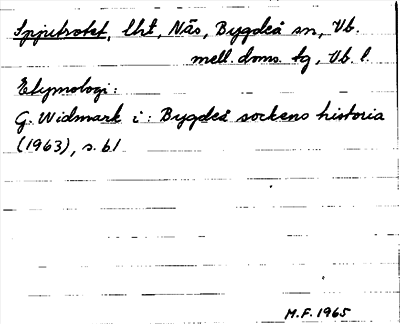 Spjutrotet, lht, Näs, Bygdeå sn, Vb.
mell. doms. tg, Vb. l.
Etymologi:
G. Widmark i: Bygdeå sockens historia
(1963), s. 61
M.F. 1965